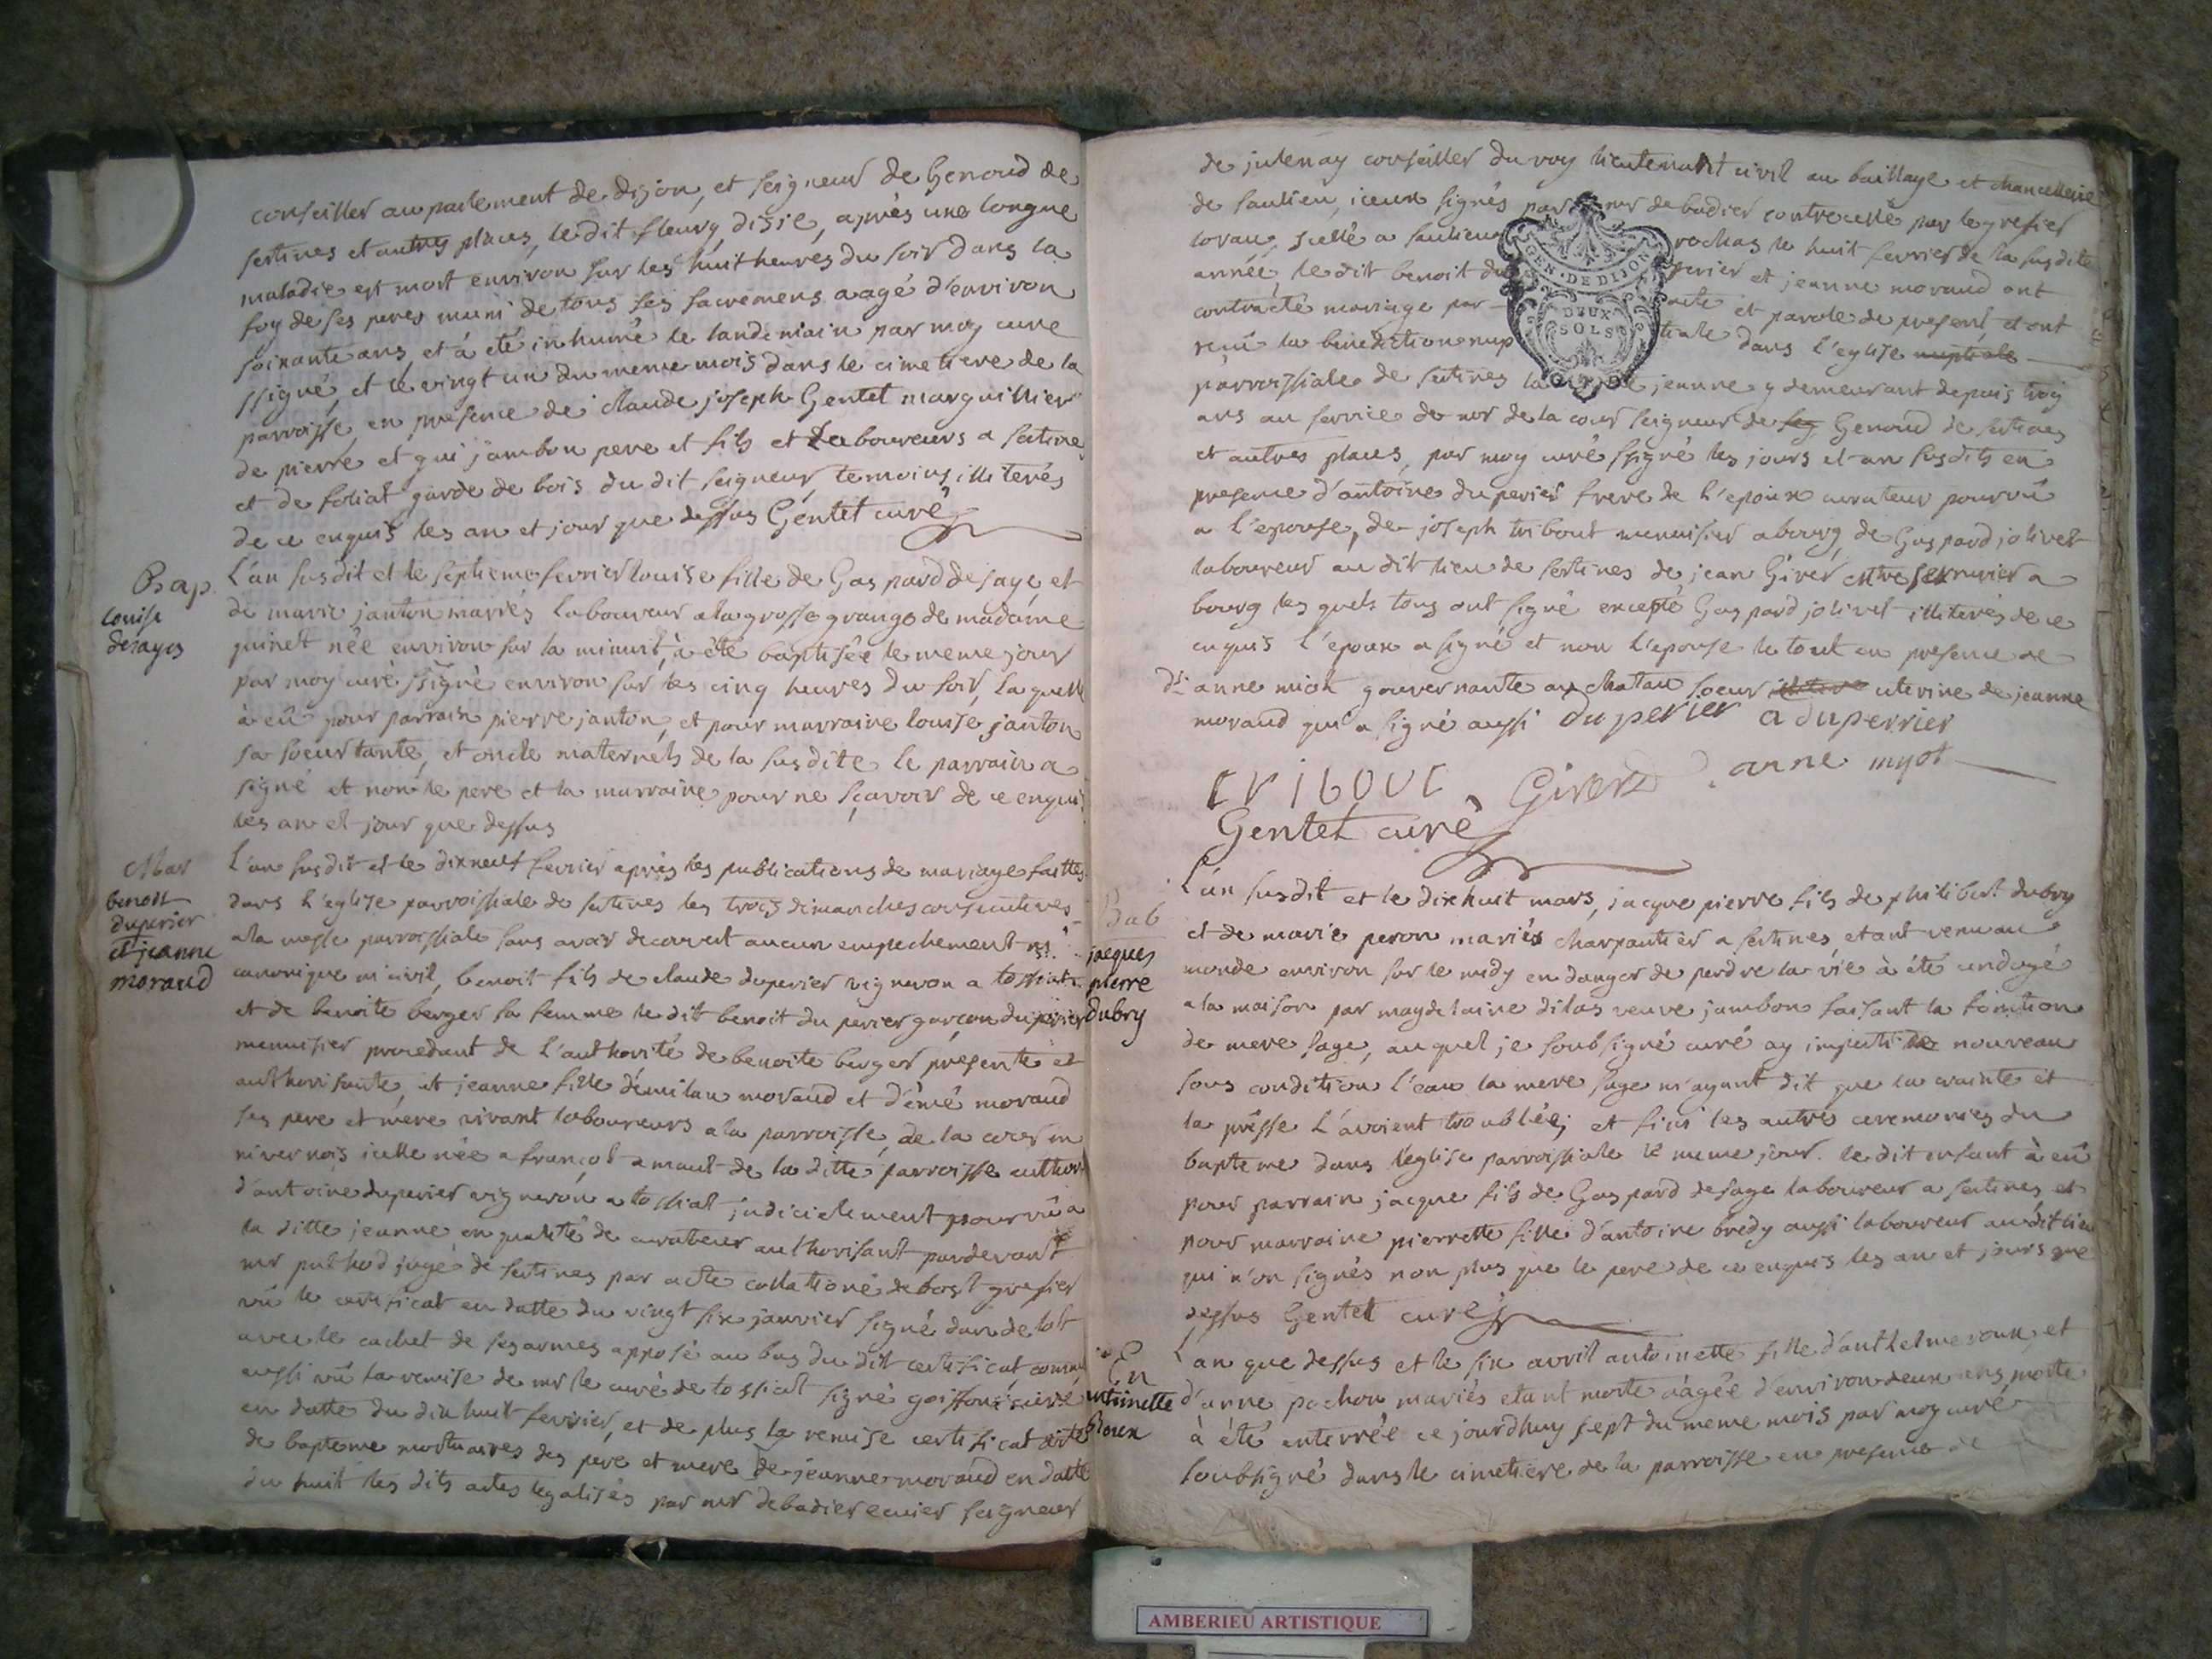 conseiller au parlement de dijon, et seigneur de Genoud de
sertines et autres places, le dit fleury disie, après une longue
maladie est mort environ sur les huit heures du soir dans la
foy de ses peres muni de tous ses sacremens aagé d'environ
soixante ans, et à été inhumé le landemain par moy curé
ssigné, et le vingt un du meme mois dans le cimetiere de la
parroisse, en presence de claude joseph Gentet marguillier
de pierre et gui jambon pere et fils et Laboureurs a sertine
et de foliat garde de bois du dit seigneur, temoins illiterés
de ce enquis les an et jour que dessus Gentet curé
Bap
louise
desayes
L'an susdit et le septieme fevrier louise fille de Gaspard desaye, et
de marie janton mariés laboureur a la grosse grange de madame
guinet née environ sur la minuit, à été baptisée le meme jour
par moy curé ssigné environ sur les cinq heures du soir, laquelle
à eû pour parrain pierre janton, et pour marraine louise janton
sa soeur tante, et oncle maternels de la susdite le parrain a
signé et non le pere et la marraine pour ne sçavoir de ce enquis
les an et jour que dessus
Mar
benoit
duperier
et jeanne
moraud
L'an susdit et le dixneuf fevrier après les publications de mariage faittes
dans l'eglise parroissiale de sertines les trois dimanches consecutives
a la messe parroissiale sans avoir decouvert aucun empechement ni
canonique ni civil, benoit fils de claude duperier vigneron a tossiat
et de benoite berger sa femme le dit benoit du perier garçon duperier
menuisier procedant de l'authorité de benoite berger presente et
authorisante, et jeanne fille d'émilan moraud et d'émé moraud
ses pere et mere vivant laboureurs a la parroisse, de la cour en
nivernois icelle née a françol amaut de la ditte parroisse author
d'antoine duperier vigneron a tossiat judicielement pourvû a
la ditte jeanne en qualité de curateur authorisant pardevant
mr puthod juge de sertines par acte collationé debost grefier
vû le certificat en datte du vingt six janvier signé dun delot
avec le cachet de ses armes apposé au bas du dit certificat comme
aussi vû la remise de mr le curé de tossiat signé goiffon curé
en datte du dix huit fevrier, et de plus la remise certificat acte
de bapteme mortuaires des pere et mere de jeanne moraud en datte
du huit les dits actes legalisés par mr debadier ecuier seigneur
de julenay conseiller du roy lieutenant civil au baillage et chancellerie
de saulieu, iceux signés par mr debadier contrecellé par le grefier
lorau, scellé a saulieu rochas le huit fevrier de la susdite
année, le dit benoit du perier et jeanne moraud ont
contracté mariage par acte et parole de present, et ont
reçû la benediction nup tiale dans l'eglise nuptiale
parroissiale de sertines la jeanne y demeurant depuis trois
ans au service de mr de la cour seigneur de seg Genoud de sertines
et autres places, par moy curé ssigné les jours et an susdits en
presence d'antoine duperier frere de l'epoux curateur pourvû
a l'epouse, de joseph tribout menuisier a bourg, de Gaspard jolivet
laboureur au dit lieu de sertines de jean Girer serrurier a
bourg les quels tous ont signé excepté Gaspard jolivet illiterés de ce
enquis l'epoux a signé et non l'epouse le tout en presence de
dlle anne miot gouvernante au chatau soeur uterine de jeanne
moraud qui a signé aussi duperier a duperrier
tribout Girerd anne myot
Gentet curé
GEN. DE DIJON
DEUX
SOLS
Bab
jacques
pierre
dubry
L'an susdit et le dixhuit mars, jacque pierre fils de philibert dubry
et de marie peron mariés charpantier a sertines, etant venu au
monde environ sur le midy en danger de perdre la vie à été undoyé
a la maison par maydelaine dilas veuve jambon faisant la fonction
de mere sage, auquel je soubsigné curé ay imparti de nouveau
sous condition l'eau la mere sage m'ayant dit que la crainte et
la prêsse l'avoient troublée; et fini les autres ceremonies du
bapteme dans l'eglise parroissiale le meme jour. le dit enfant à eû
pour parrain jacque fils de Gaspard desaye laboureur a sertines et
pour marraine pierrette fille d'antoine brédy aussi laboureur audit lieu
qui n'on signés non plus que le pere de ce enquis les an et jours que
dessus Gentet curé
En
antoinette
Roux
L'an que dessus et le six avril antoinette fille d'anthelme roux, et
d'anne pochon mariés etant morte aagée d'environ deux ans, morte
à été enterrée ce jourdhuy sept du meme mois par moy curé
soubsigné dans le cimetiere de la parroisse en presence de
AMBERIEU ARTISTIQUE